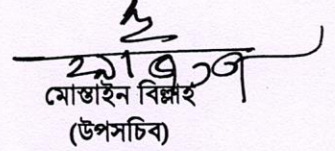 মোস্তাইন বিল্লাহ
(উপসচিব)